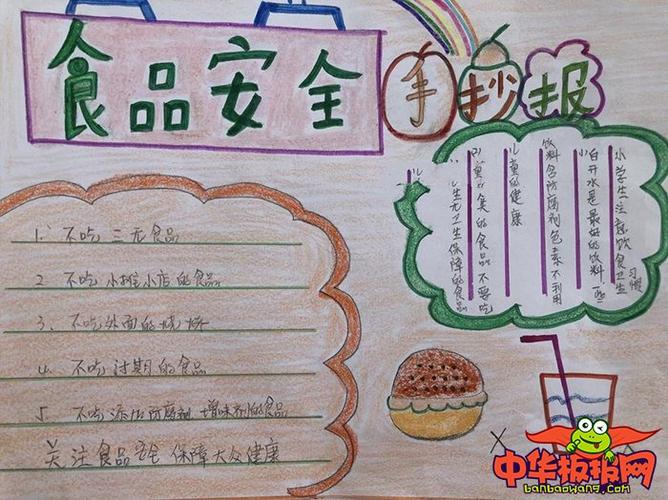 食品安全手抄报
1. 不吃三无食品
2 不吃小摊小店的食品
3、不吃外面的烧烤
4. 不吃过期的食品
5. 不吃添加防腐剂 增味剂的食品
关注食品安全 保障大众健康
小学生注意饮食卫生习惯
白开水是最好的饮料 一些
饮料含防腐剂色素不利用
儿童的健康
生尤卫生保障的食品
中华板报网
banbaowang.com